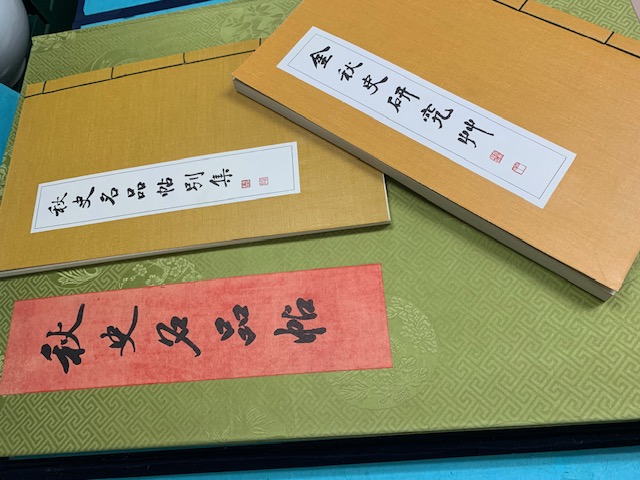 金秋史研究艸
秋史名品帖別集
秋史名品帖